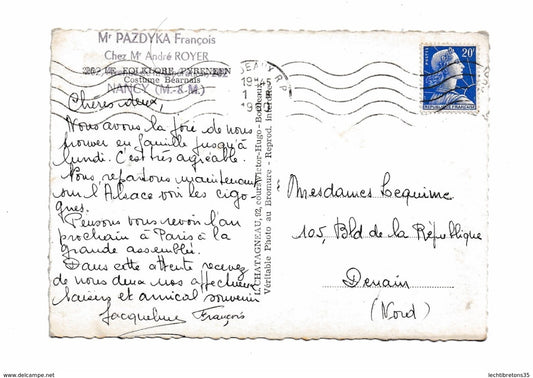 Mr PAZDYKA François
Chez Mr André ROYER
LE FOLKLORE PYRENEEN
Costume Béarnais
NANCY (M.-&-M.)
Chères deux,
Nous avons la joie de nous
trouver en famille jusqu'à
lundi. C'est très agréable.
Nous repartons maintenant
sur l'Alsace voir les cigo-
gnes.
Pensons vous revoir l'an
prochain à Paris à la
grande assemblée.
Dans cette attente recevez
de nous deux nos affectueux
baisers et amical souvenir
Jacqueline François
CHATAGNEAU, 92, cours Victor-Hugo - Bordeaux
Véritable Photo au Bromure - Reprod. Interdite
POSTES
20F
REPUBLIQUE FRANÇAISE
Mesdames Lequime
105, Bld de la République
Denain
(Nord)
lechtibretons35